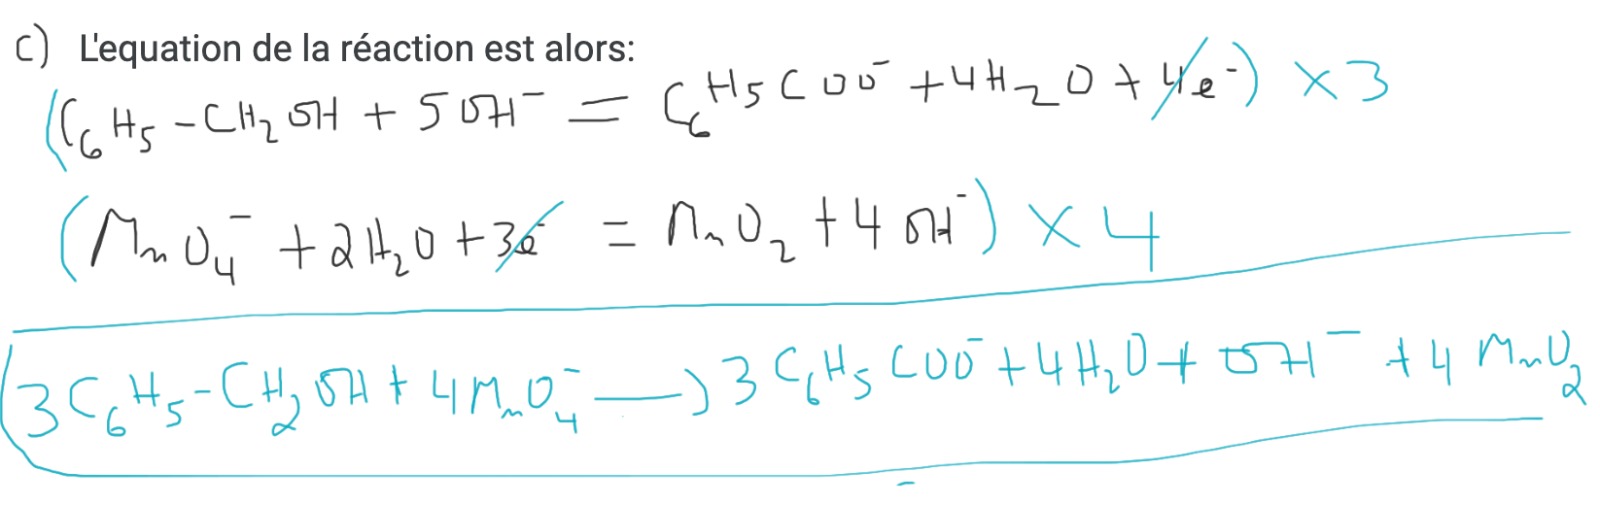 c) L'equation de la réaction est alors:
(C₆H₅-CH₂OH + 5OH⁻ = C₆H₅COO⁻ + 4H₂O + 4e⁻) × 3
(MnO₄⁻ + 2H₂O + 3e⁻ = MnO₂ + 4OH⁻) × 4
3C₆H₅-CH₂OH + 4MnO₄⁻ → 3C₆H₅COO⁻ + 4H₂O + OH⁻ + 4MnO₂